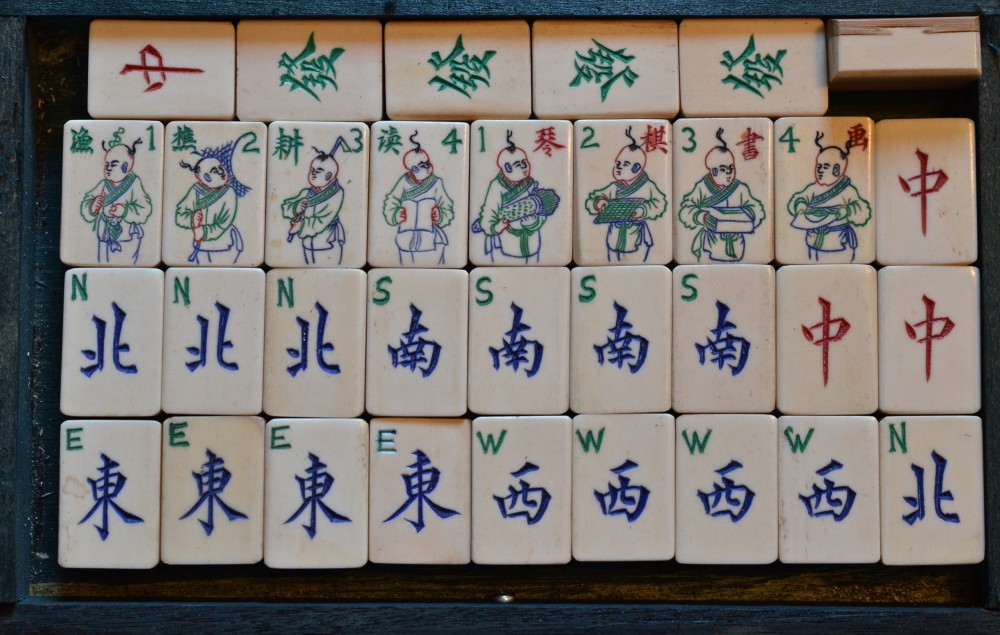 中 發 發 發 發
漁 1 樵 2 耕 3 读 4 1 琴 2 棋 3 書 4 画 中
N 北 N 北 N 北 S 南 S 南 S 南 S 南 中 中
E 東 E 東 E 東 E 東 W 西 W 西 W 西 W 西 N 北